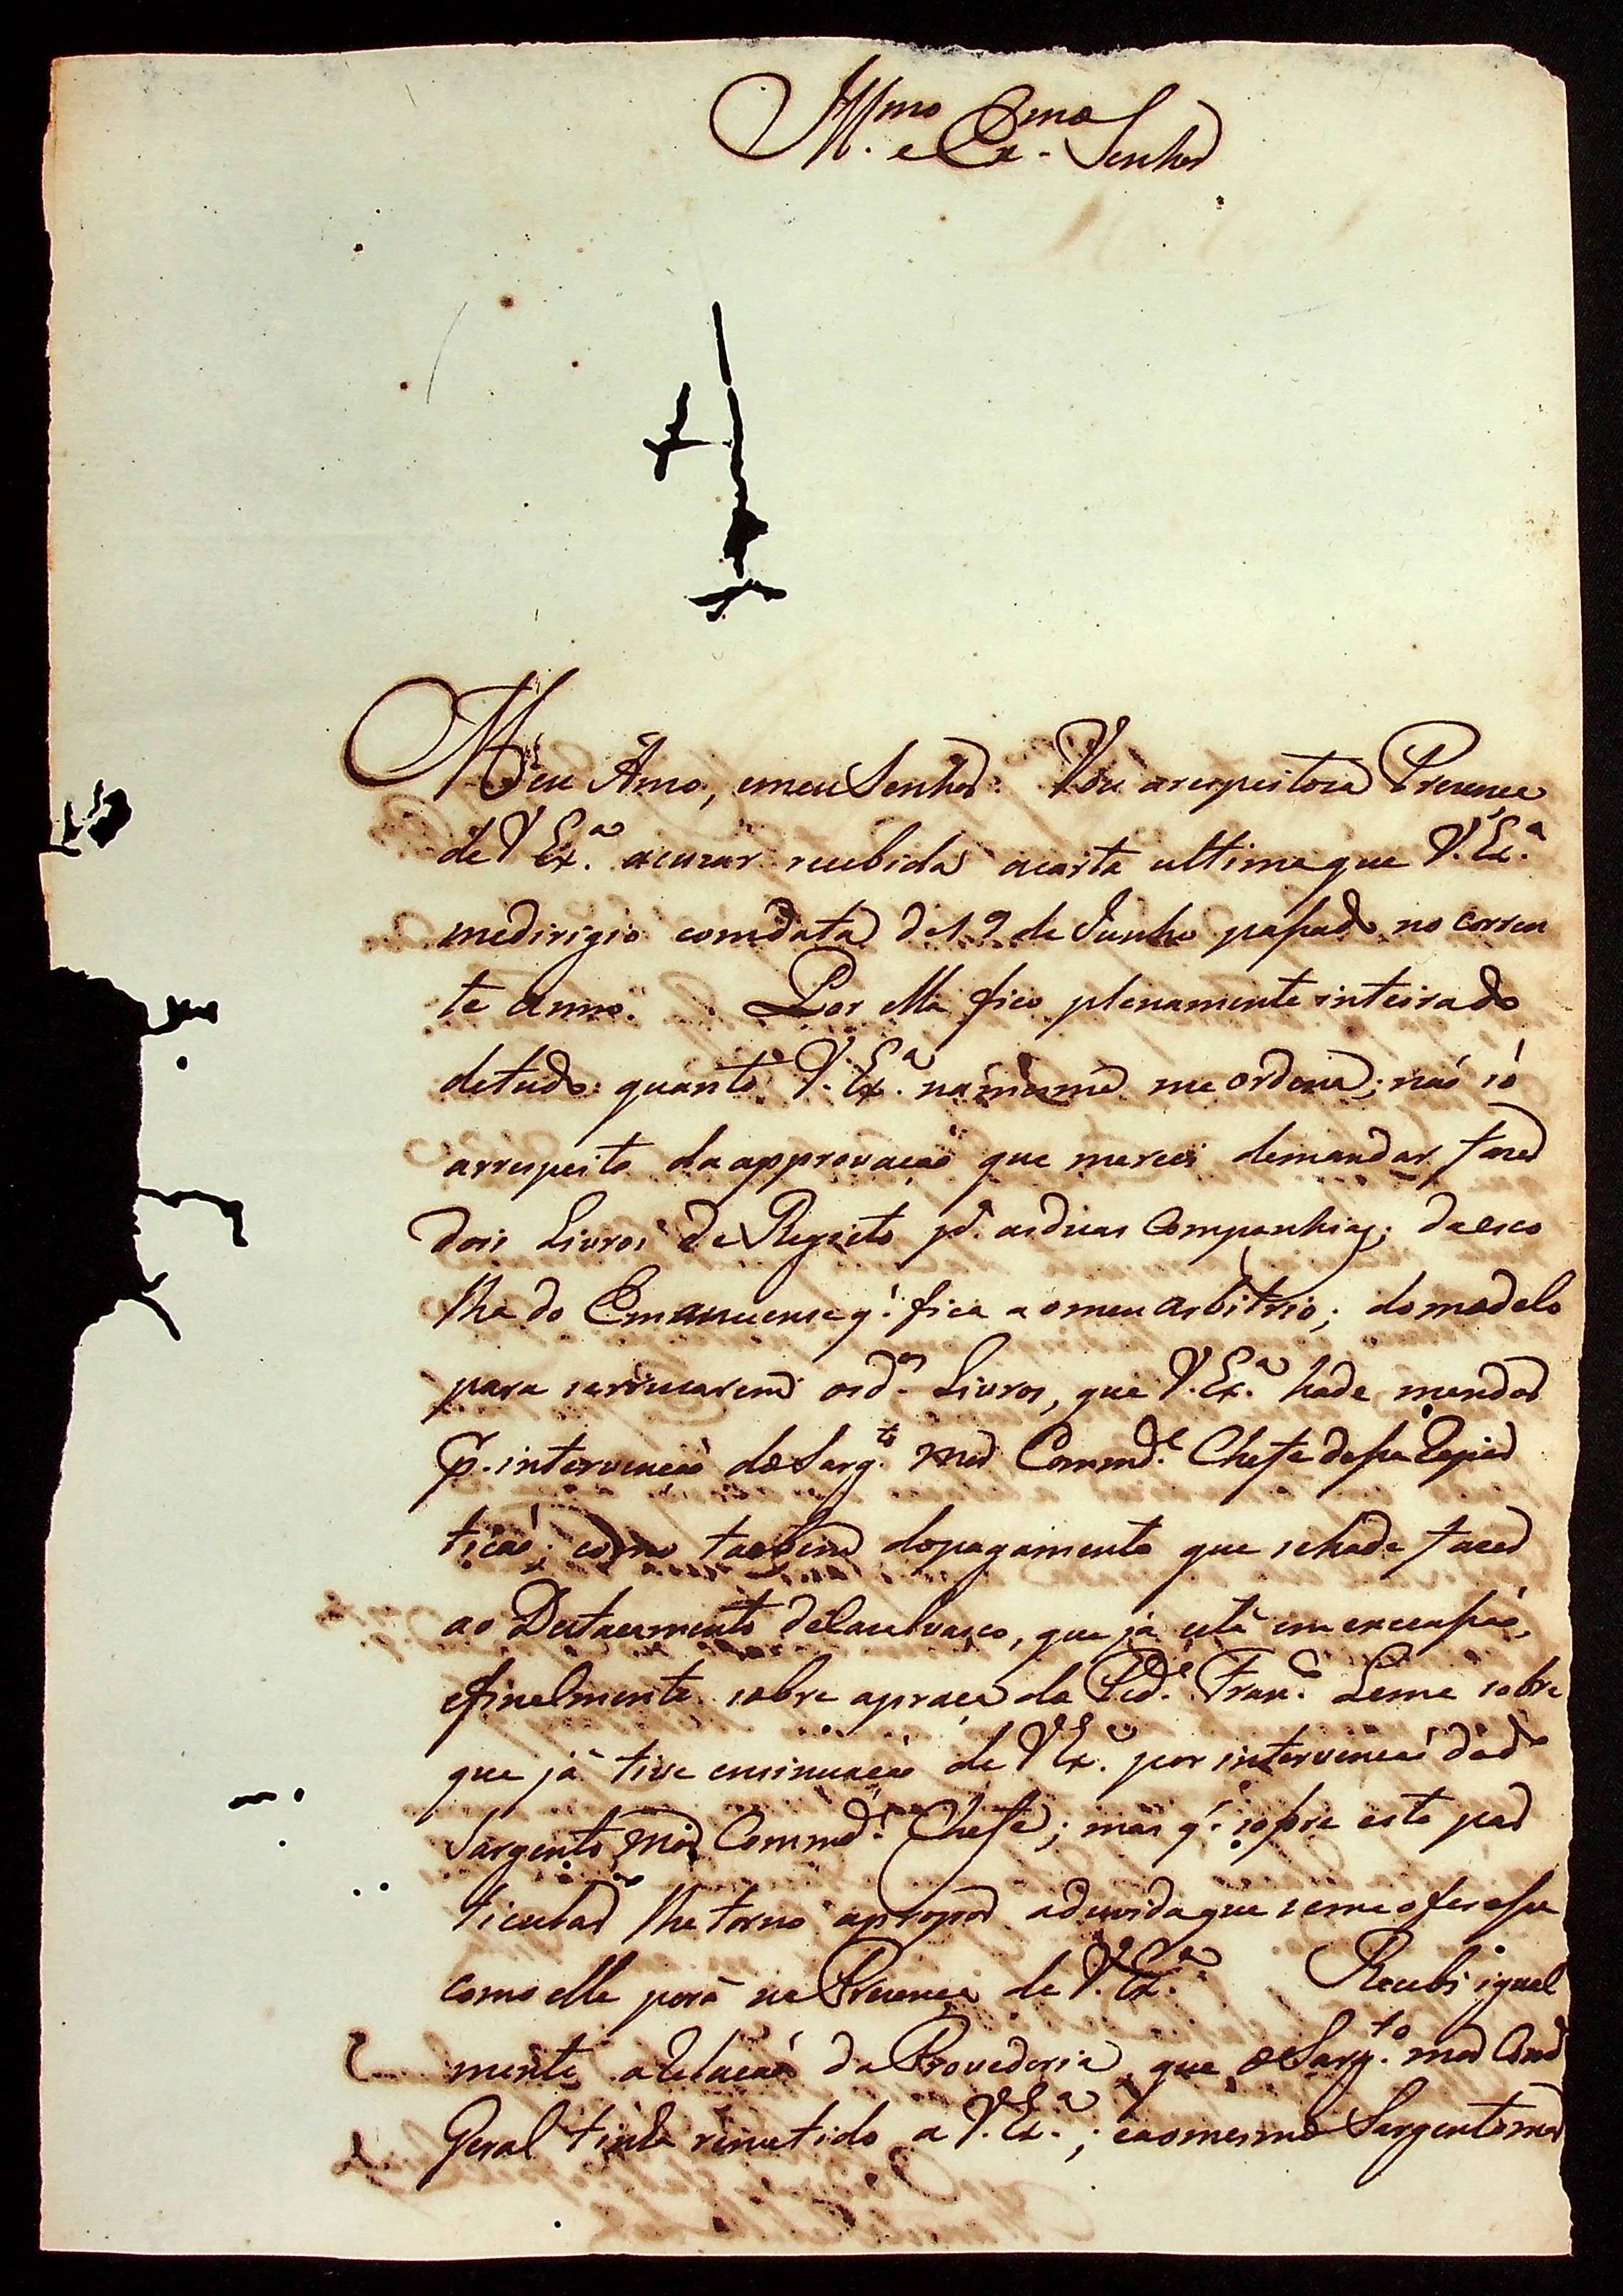 Ill.mo e Ex.mo Senhor
Meu Amo, emeu Senhor. Vou arespeitoza Prezença
de V Ex.a acuzar recebida acarta ultima que V. Ex.a
medirigio comdata de 19 de Junho passado no corren
te anno. Por ella fico plenamente inteirado
detudo quanto V. Ex.a namesma me ordena; não só
arrespeito da approvação que mereci demandar fazer
dois Livros de Registo p.a asduas Companhias; da esco
lha do Emanuense q. fica a omeu arbitrio; do modelo
para se riscarem osd.os Livros, que V. Ex.a hade mandar
p. intervenção do Sarg.to Mor Command.e Chefe dessa Expedi
ção; como tãobem dopagamento que sehade fazer
ao Destacamento de que já está em execussão,
efinalmente sobre apraça do Fran.co Leme sobre
que já tive ensinuação de V Ex.a por intervenção dod.o
Sargento Mor Command.e Chefe; mas q. sobre este par
ticular lhe torno apropor aduvida que seme oferesse
como elle porá na Prezença de V. Ex.a Recebi igual
mente aRelação da Provedoria que o Sarg.to mor Com.e
Geral tinha remetido a V. Ex.a; eaomesmo Sargento mor